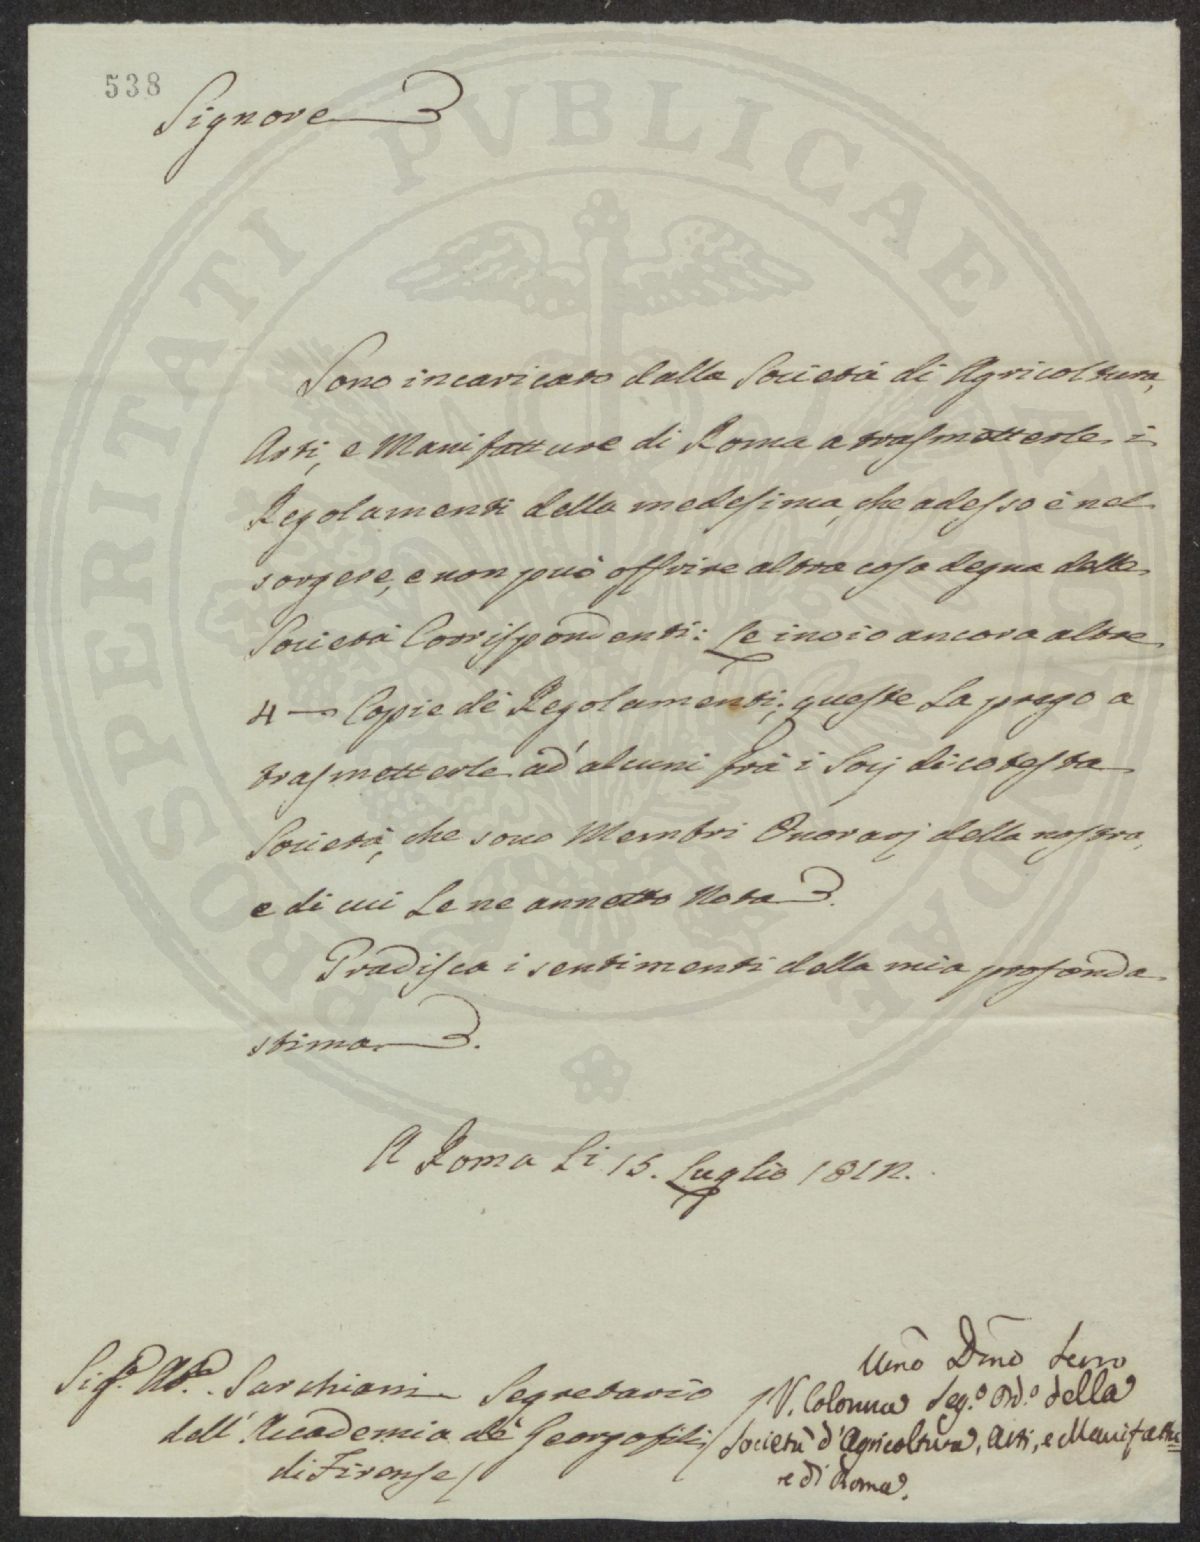 538
Signore
Sono incaricato dalla Società di Agricoltura,
Arti, e Manifatture di Roma a trasmetterle i
Regolamenti della medesima, che adesso è nel
sorgere, e non può offrire altra cosa degna delle
Società Corrispondenti: Le invio ancora altre
4 Copie dè Regolamenti; queste La prego a
trasmetterle ad' alcuni frà i Socj di cotesta
Società, che sono Membri Onorarj della nostra,
e di cui Le ne annetto Nota.
Gradisca i sentimenti della mia profonda
stima.
A Roma Li 15. Luglio 1812.
Sigr. Abe. Sarchiani Segretario
dell' Accademia dè Georgofili
di Firenze
Umo Dmo Servo
V. Colonna Seg.o Ord.o della
Società d'Agricoltura, Arti, e Manifattu
re di Roma.
PROSPERITATI PVBLICAE AVGENDAE